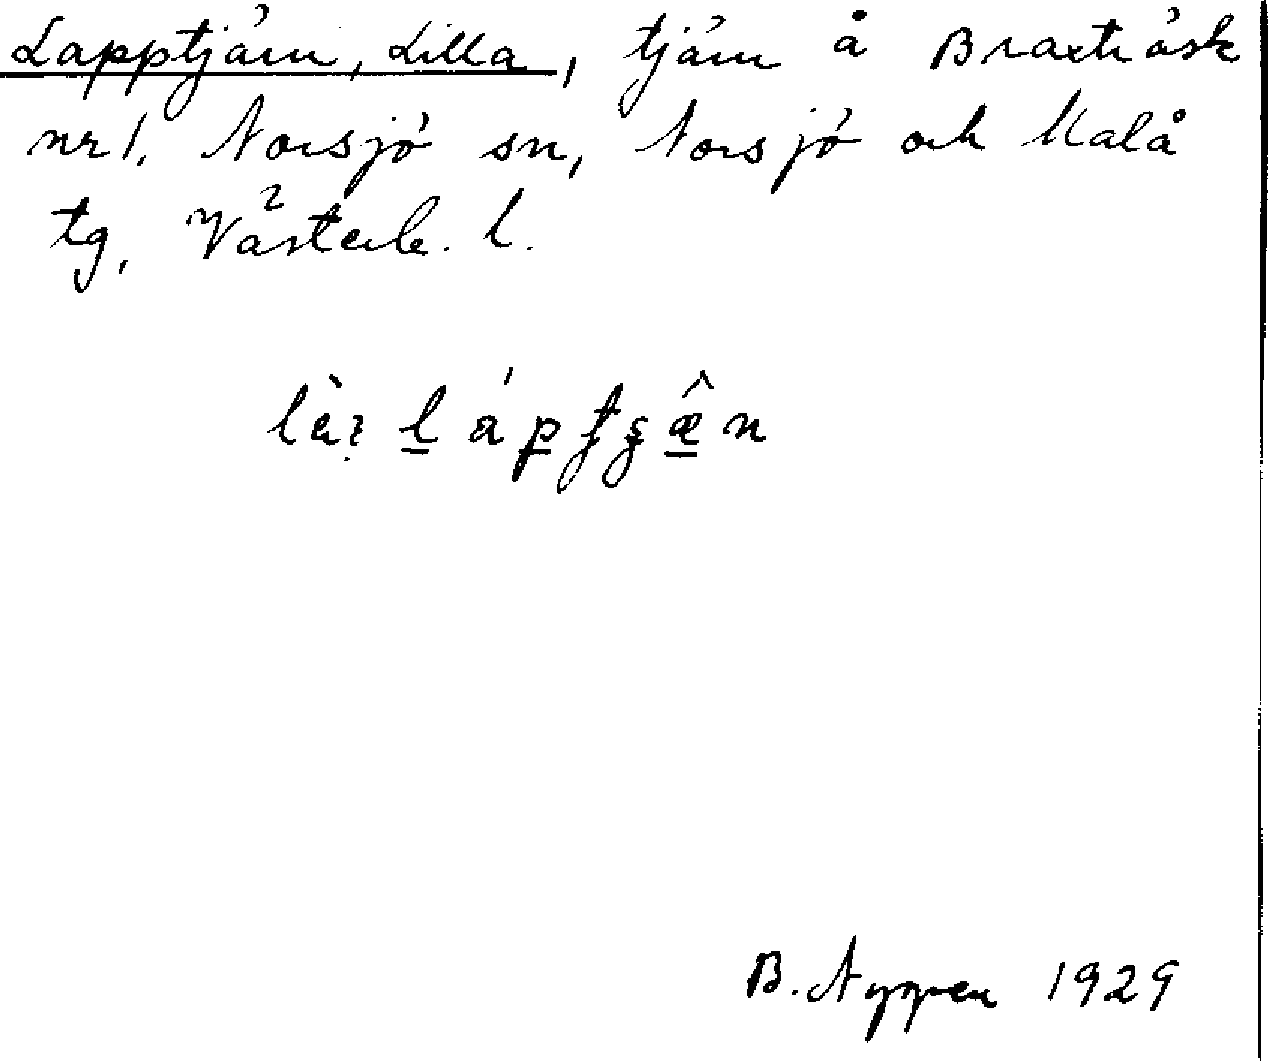 Lapptjärn, Lilla, tjärn å Braxträsk
nr 1, Norsjö sn, Norsjö och Malå
tg, Västerb. l.
B. Nyppen 1929